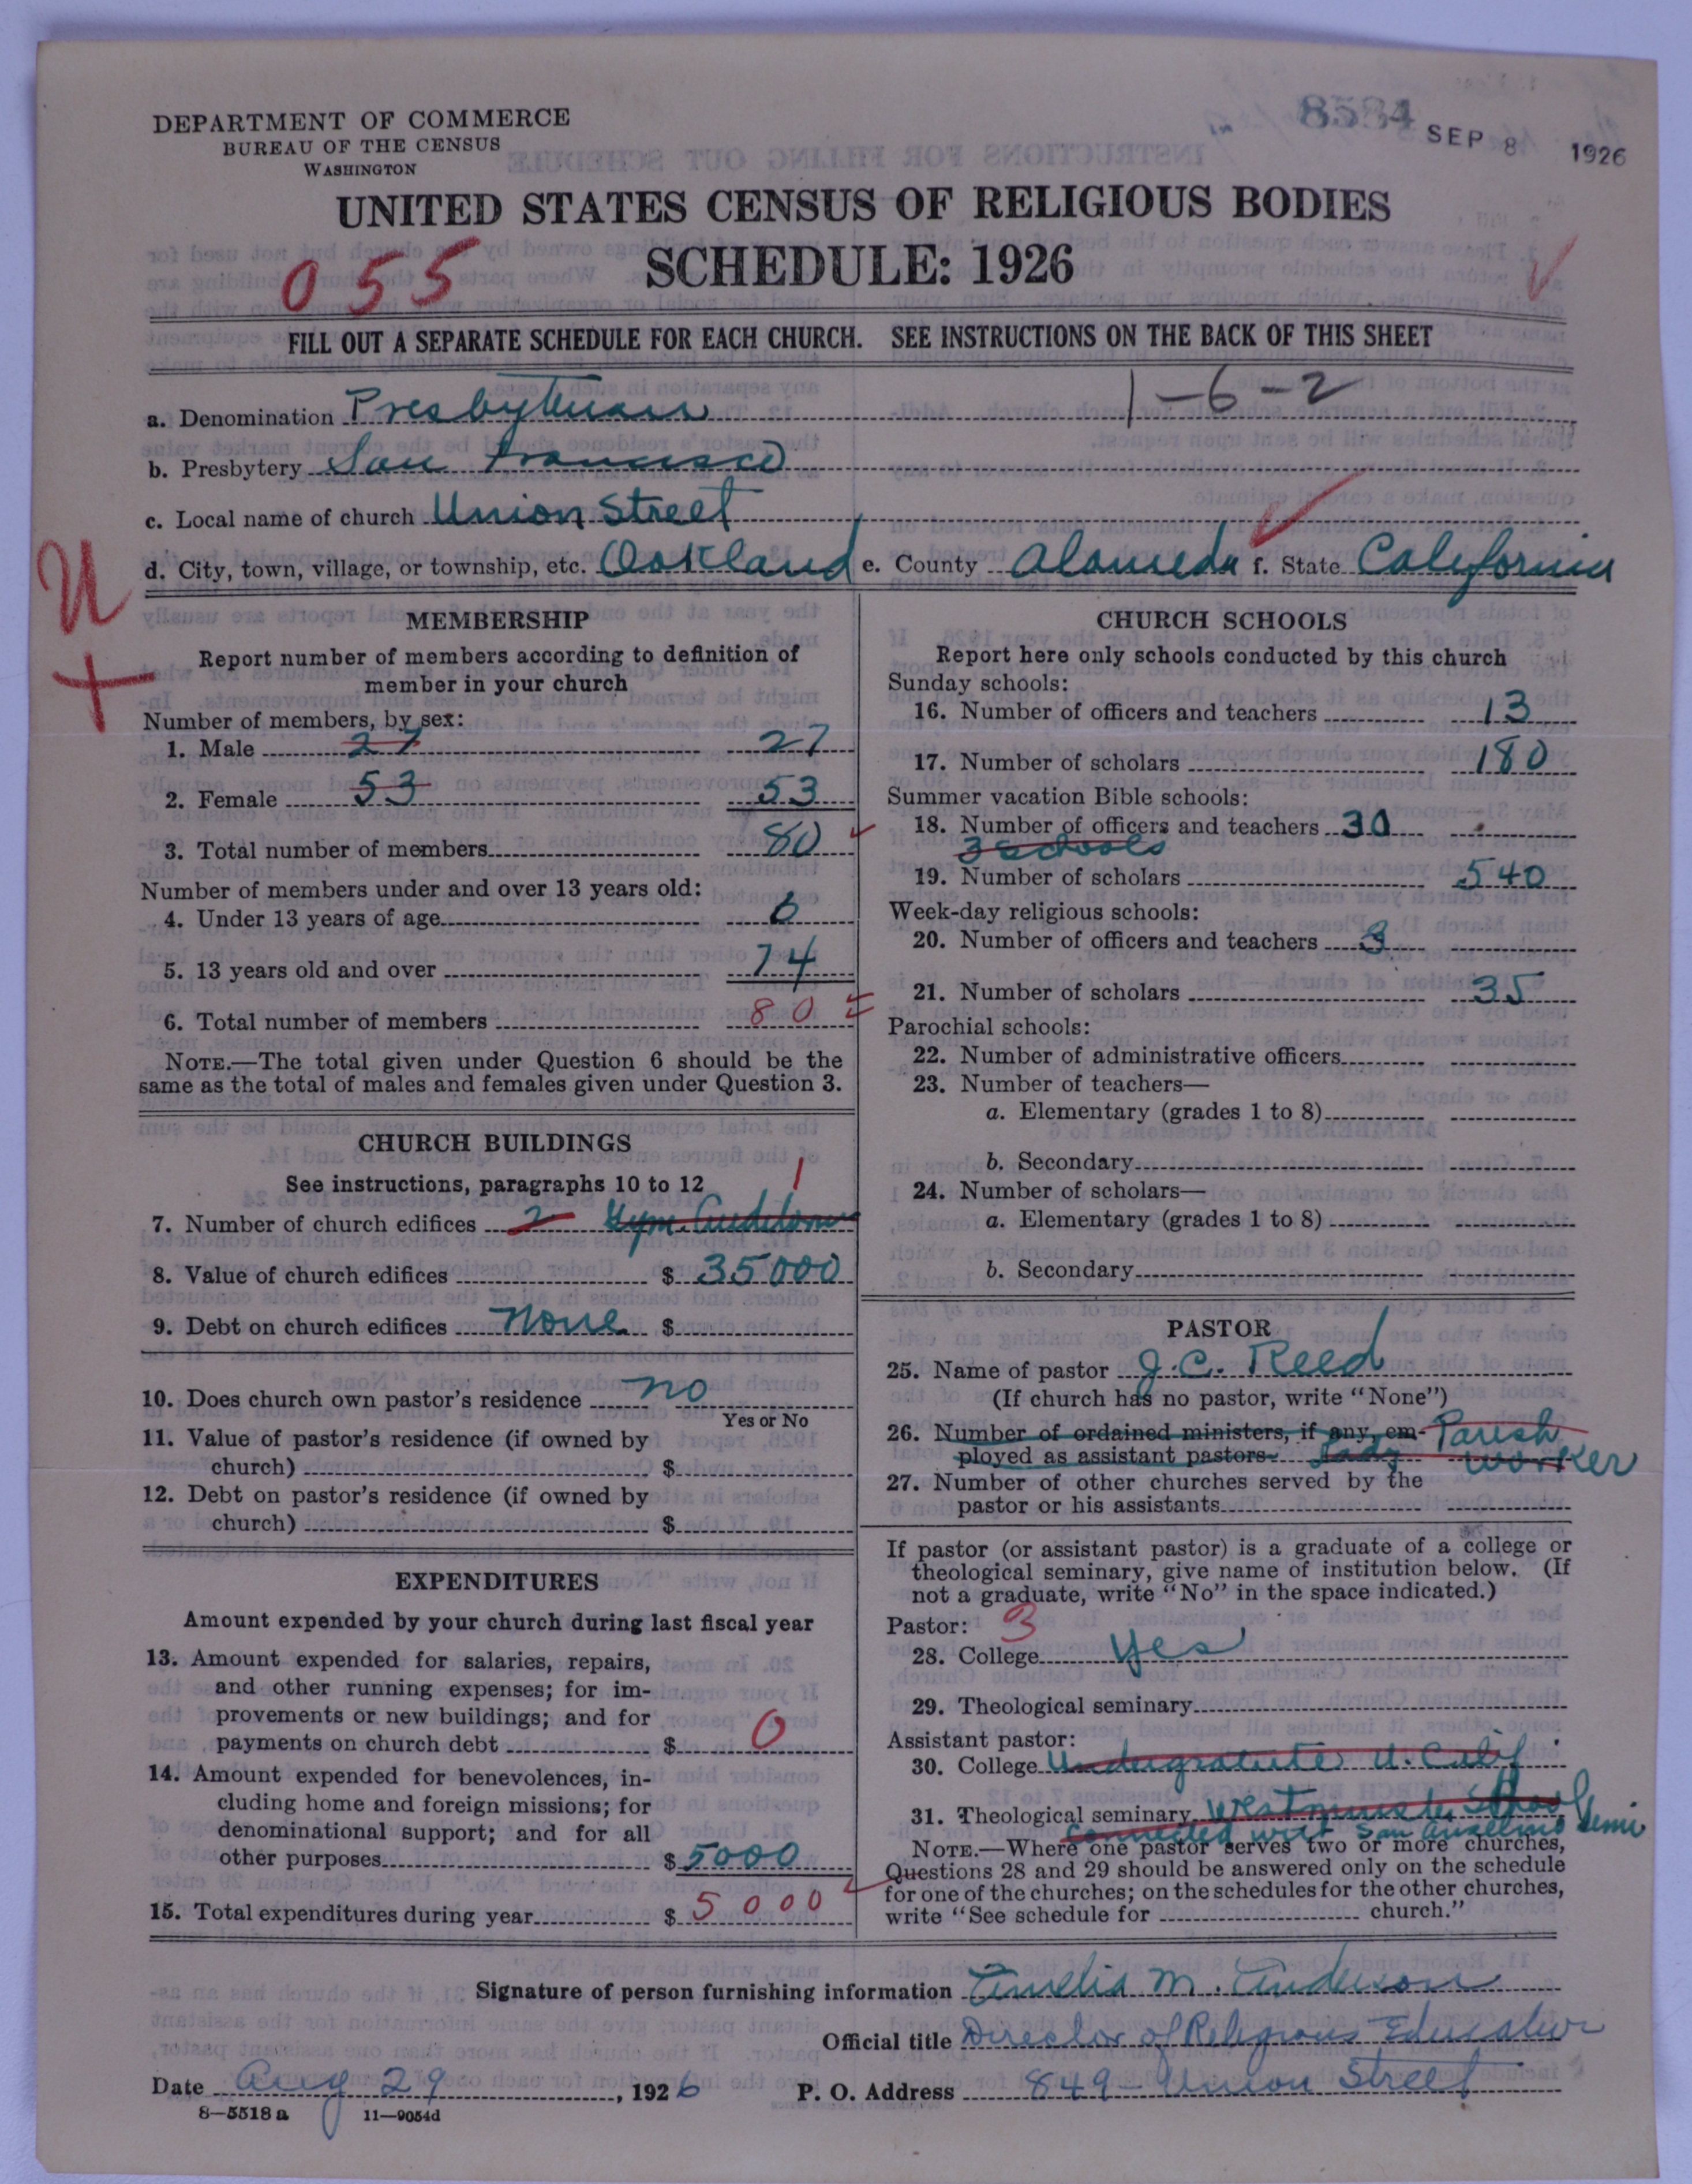 8584 SEP 8 1926
DEPARTMENT OF COMMERCE
BUREAU OF THE CENSUS
WASHINGTON
UNITED STATES CENSUS OF RELIGIOUS BODIES
SCHEDULE: 1926
055
FILL OUT A SEPARATE SCHEDULE FOR EACH CHURCH. SEE INSTRUCTIONS ON THE BACK OF THIS SHEET
a. Denomination Presbyterian 1-6-2
b. Presbytery San Francisco
c. Local name of church Union Street
d. City, town, village, or township, etc. Oakland e. County Alameda f. State California
U
+
MEMBERSHIP
Report number of members according to definition of
member in your church
Number of members, by sex:
1. Male 27 27
2. Female 53 53
3. Total number of members 80
Number of members under and over 13 years old:
4. Under 13 years of age 6
5. 13 years old and over 74
6. Total number of members 80
NOTE.—The total given under Question 6 should be the
same as the total of males and females given under Question 3.
CHURCH BUILDINGS
See instructions, paragraphs 10 to 12 1
7. Number of church edifices 2 Gym. Auditorium
8. Value of church edifices $ 35000
9. Debt on church edifices None $
10. Does church own pastor's residence no
Yes or No
11. Value of pastor's residence (if owned by
church) $
12. Debt on pastor's residence (if owned by
church) $
EXPENDITURES
Amount expended by your church during last fiscal year
13. Amount expended for salaries, repairs,
and other running expenses; for im-
provements or new buildings; and for
payments on church debt $ 0
14. Amount expended for benevolences, in-
cluding home and foreign missions; for
denominational support; and for all
other purposes $ 5000
15. Total expenditures during year $ 5000
CHURCH SCHOOLS
Report here only schools conducted by this church
Sunday schools:
16. Number of officers and teachers 13
17. Number of scholars 180
Summer vacation Bible schools:
18. Number of officers and teachers 30
3 schools
19. Number of scholars 540
Week-day religious schools:
20. Number of officers and teachers 3
21. Number of scholars 35
Parochial schools:
22. Number of administrative officers
23. Number of teachers—
a. Elementary (grades 1 to 8)
b. Secondary
24. Number of scholars—
a. Elementary (grades 1 to 8)
b. Secondary
PASTOR
25. Name of pastor J. C. Reed
(If church has no pastor, write "None")
26. Number of ordained ministers, if any, em- Parish
ployed as assistant pastors Lady worker
27. Number of other churches served by the
pastor or his assistants
If pastor (or assistant pastor) is a graduate of a college or
theological seminary, give name of institution below. (If
not a graduate, write "No" in the space indicated.)
Pastor: 3
28. College yes
29. Theological seminary
Assistant pastor:
30. College Undergraduate U. Calif.
31. Theological seminary Westminster School
connected with San Anselmo Semi
NOTE.—Where one pastor serves two or more churches,
Questions 28 and 29 should be answered only on the schedule
for one of the churches; on the schedules for the other churches,
write "See schedule for church."
Signature of person furnishing information Amelia M. Anderson
Official title Director of Religious Education
Date Aug 29, 1926 P. O. Address 849 - Union Street
8—5518 a 11—9054d